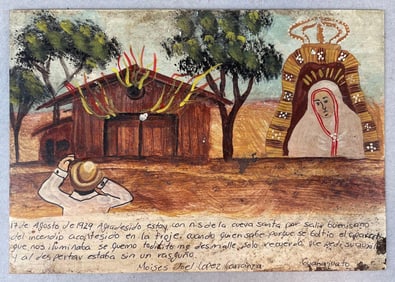 17 de Agosto de 1929 Agradesido estoy con n.s de la cueva santa por salir bueno y sano
del incendio acontesido en la troje, cuando quien sabe porque se
que nos iluminaba se quemo todito me desmalle, solo recuerdo que
y al despertar estaba sin un rasguño.
Moises Joel Lopez Carranza Guanajuato